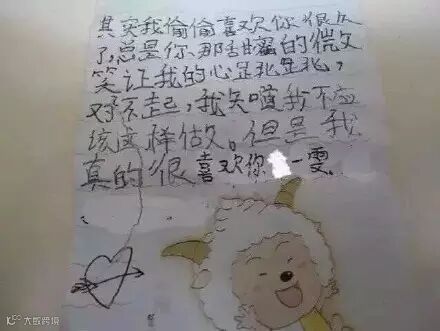 其实我偷偷喜欢你很久
了,总是你那甜蜜的微笑
笑让我的心乱乱,
对不起,我知道我不应
该这样做。但是我
真的很喜欢你 一雯
大数跨境